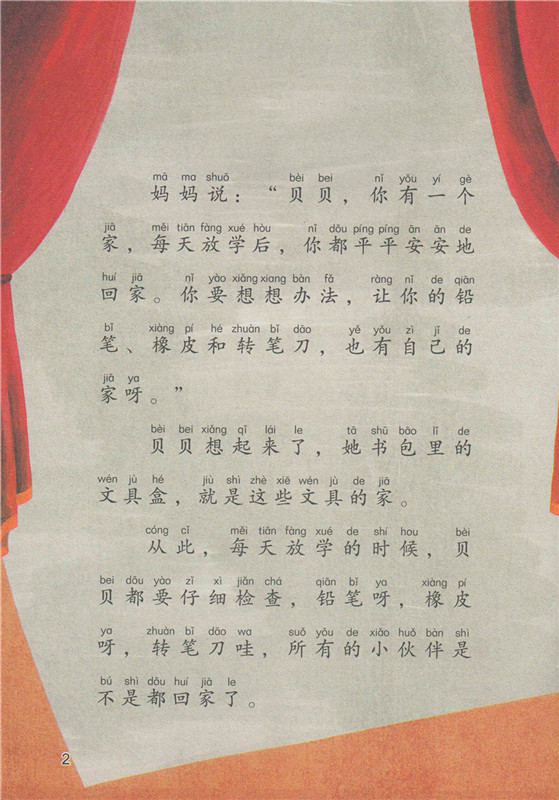 mā ma shuō bèi bei nǐ yǒu yí gè
妈妈说：“贝贝，你有一个
jiā měi tiān fàng xué hòu nǐ dōu píng píng ān ān de
家，每天放学后，你都平平安安地
huí jiā nǐ yào xiǎng xiang bàn fǎ ràng nǐ de qiān
回家。你要想想办法，让你的铅
bǐ xiàng pí hé zhuàn bǐ dāo yě yǒu zì jǐ de
笔、橡皮和转笔刀，也有自己的
jiā ya
家呀。”
bèi bei xiǎng qǐ lái le tā shū bāo lǐ de
贝贝想起来了，她书包里的
wén jù hé jiù shì zhè xiē wén jù de jiā
文具盒，就是这些文具的家。
cóng cǐ měi tiān fàng xué de shí hou bèi
从此，每天放学的时候，贝
bei dōu yào zǐ xì jiǎn chá qiān bǐ ya xiàng pí
贝都要仔细检查，铅笔呀，橡皮
ya zhuàn bǐ dāo wa suǒ yǒu de xiǎo huǒ bàn shì
呀，转笔刀哇，所有的小伙伴是
bú shì dōu huí jiā le
不是都回家了。
2